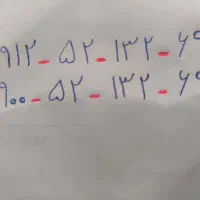 ۹۱۲ - ۵۲ - ۱۳۲ - ۶
۹۰۰ - ۵۲ - ۱۳۲ - ۶